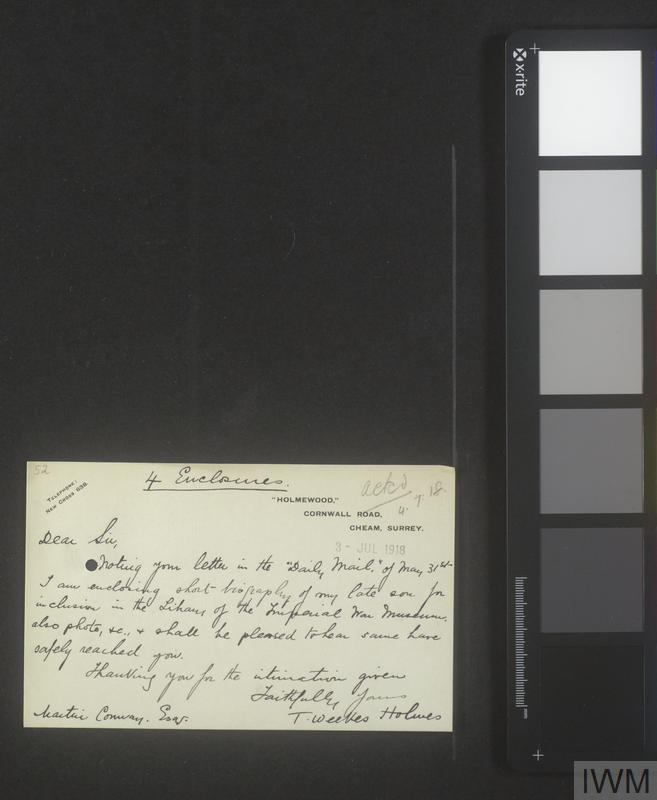 x-rite
52
4 Enclosures.
TELEPHONE:
NEW CROSS 698.
ackd
4. 7. 18.
"HOLMEWOOD,"
CORNWALL ROAD,
CHEAM, SURREY.
3 - JUL 1918
Dear Sir,
Noting your letter in the "Daily Mail," of May 31st
I am enclosing short biography of my late son for
inclusion in the Library of the Imperial War Museum,
also photo, &c., & shall be pleased to hear same have
safely reached you.
Thanking you for the intimation given
Faithfully Yours
T. Weekes Holmes
Martin Conway. Esqr.
IWM